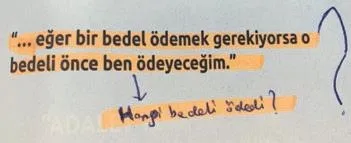 "... eğer bir bedel ödemek gerekiyorsa o
bedeli önce ben ödeyeceğim."
Hangi bedeli ödedi?
?